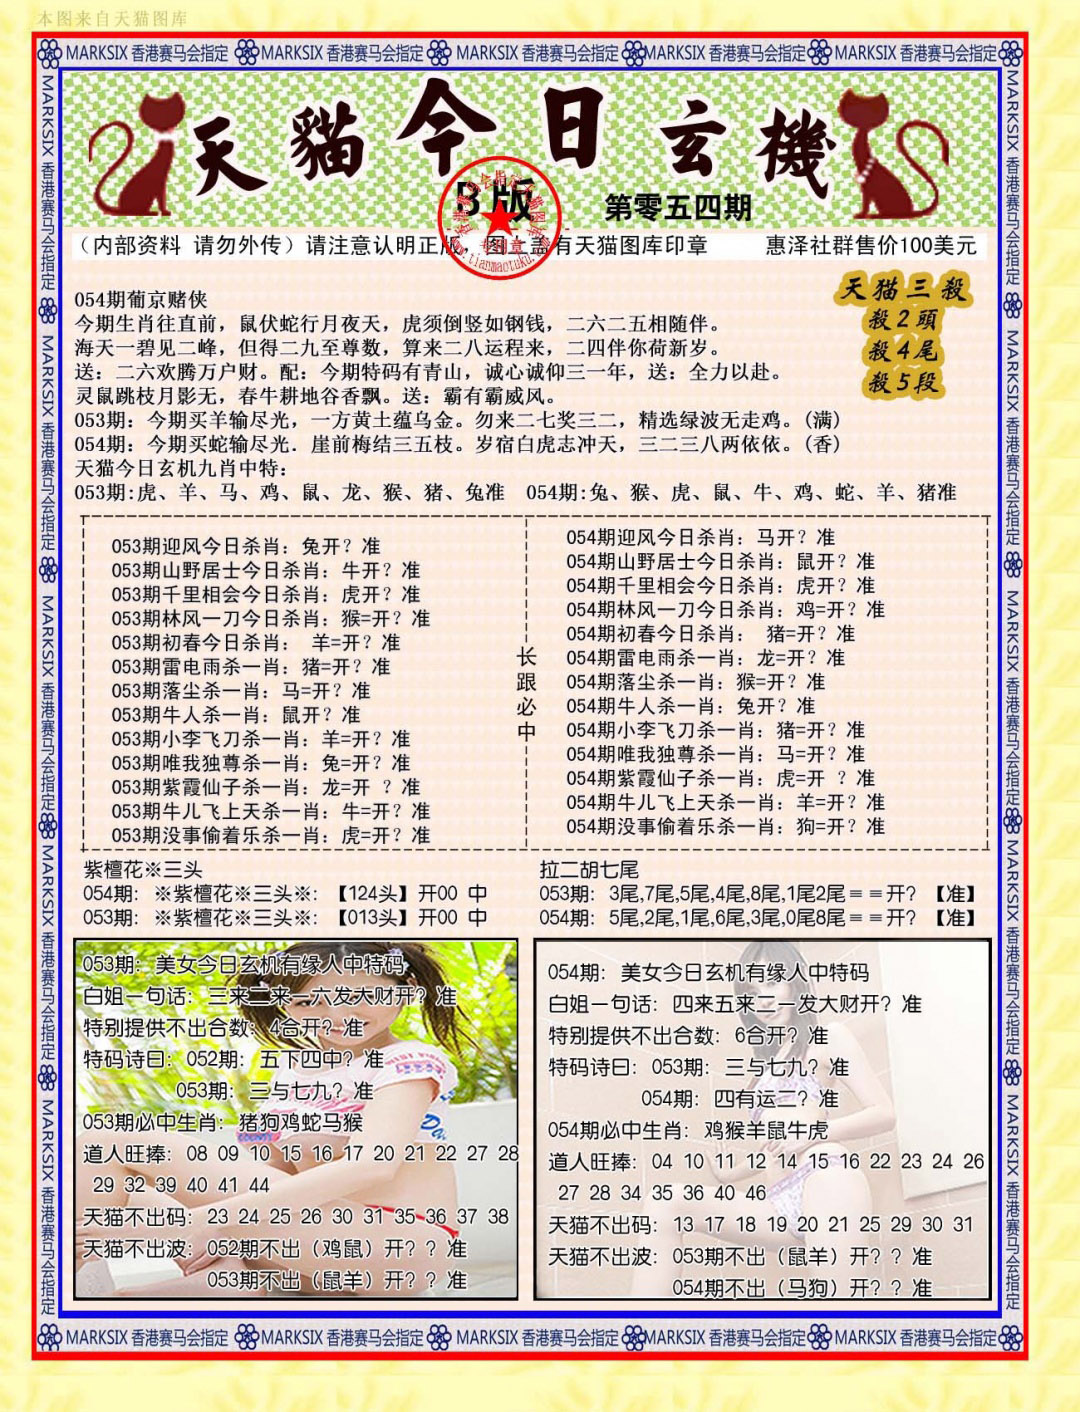 本图来自天猫图库
MARKSIX 香港赛马会指定 MARKSIX 香港赛马会指定 MARKSIX 香港赛马会指定 MARKSIX 香港赛马会指定 MARKSIX 香港赛马会指定
天貓今日玄機
B版
第零五四期
（内部资料 请勿外传）请注意认明正版，图上盖有天猫图库印章 惠泽社群售价100美元
天猫三殺
殺2頭
殺4尾
殺5段
054期葡京赌侠
今期生肖往直前，鼠伏蛇行月夜天，虎须倒竖如钢钱，二六二五相随伴。
海天一碧见二峰，但得二九至尊数，算来二八运程来，二四伴你荷新岁。
送：二六欢腾万户财。配：今期特码有青山，诚心诚仰三一年，送：全力以赴。
灵鼠跳枝月影无，春牛耕地谷香飘。送：霸有霸威风。
053期：今期买羊输尽光，一方黄土蕴乌金。勿来二七奖三二，精选绿波无走鸡。(满)
054期：今期买蛇输尽光．崖前梅结三五枝。岁宿白虎志冲天，三二三八两依依。(香)
天猫今日玄机九肖中特：
053期:虎、羊、马、鸡、鼠、龙、猴、猪、兔准 054期:兔、猴、虎、鼠、牛、鸡、蛇、羊、猪准
053期迎风今日杀肖：兔开？准
053期山野居士今日杀肖：牛开？准
053期千里相会今日杀肖：虎开？准
053期林风一刀今日杀肖：猴=开？准
053期初春今日杀肖： 羊=开？准
053期雷电雨杀一肖：猪=开？准
053期落尘杀一肖：马=开？准
053期牛人杀一肖：鼠开？准
053期小李飞刀杀一肖：羊=开？准
053期唯我独尊杀一肖：兔=开？准
053期紫霞仙子杀一肖：龙=开 ？准
053期牛儿飞上天杀一肖：牛=开？准
053期没事偷着乐杀一肖：虎=开？准
长跟必中
054期迎风今日杀肖：马开？准
054期山野居士今日杀肖：鼠开？准
054期千里相会今日杀肖：虎开？准
054期林风一刀今日杀肖：鸡=开？准
054期初春今日杀肖： 猪=开？准
054期雷电雨杀一肖：龙=开？准
054期落尘杀一肖：猴=开？准
054期牛人杀一肖：兔开？准
054期小李飞刀杀一肖：猪=开？准
054期唯我独尊杀一肖：马=开？准
054期紫霞仙子杀一肖：虎=开 ？准
054期牛儿飞上天杀一肖：羊=开？准
054期没事偷着乐杀一肖：狗=开？准
紫檀花※三头
054期：※紫檀花※三头※：【124头】开00 中
053期：※紫檀花※三头※：【013头】开00 中
拉二胡七尾
053期：3尾,7尾,5尾,4尾,8尾,1尾2尾＝＝开？【准】
054期：5尾,2尾,1尾,6尾,3尾,0尾8尾＝＝开？【准】
053期：美女今日玄机有缘人中特码
白姐一句话：三来二来一六发大财开？准
特别提供不出合数：4合开？准
特码诗曰：052期：五下四中？准
053期：三与七九？准
053期必中生肖：猪狗鸡蛇马猴
道人旺捧：08 09 10 15 16 17 20 21 22 27 28
29 32 39 40 41 44
天猫不出码：23 24 25 26 30 31 35 36 37 38
天猫不出波：052期不出（鸡鼠）开？？准
053期不出（鼠羊）开？？准
054期：美女今日玄机有缘人中特码
白姐一句话：四来五来二一发大财开？准
特别提供不出合数：6合开？准
特码诗曰：053期：三与七九？准
054期：四有运二？准
054期必中生肖：鸡猴羊鼠牛虎
道人旺捧：04 10 11 12 14 15 16 22 23 24 26
27 28 34 35 36 40 46
天猫不出码：13 17 18 19 20 21 25 29 30 31
天猫不出波：053期不出（鼠羊）开？？准
054期不出（马狗）开？？准
MARKSIX 香港赛马会指定 MARKSIX 香港赛马会指定 MARKSIX 香港赛马会指定 MARKSIX 香港赛马会指定 MARKSIX 香港赛马会指定